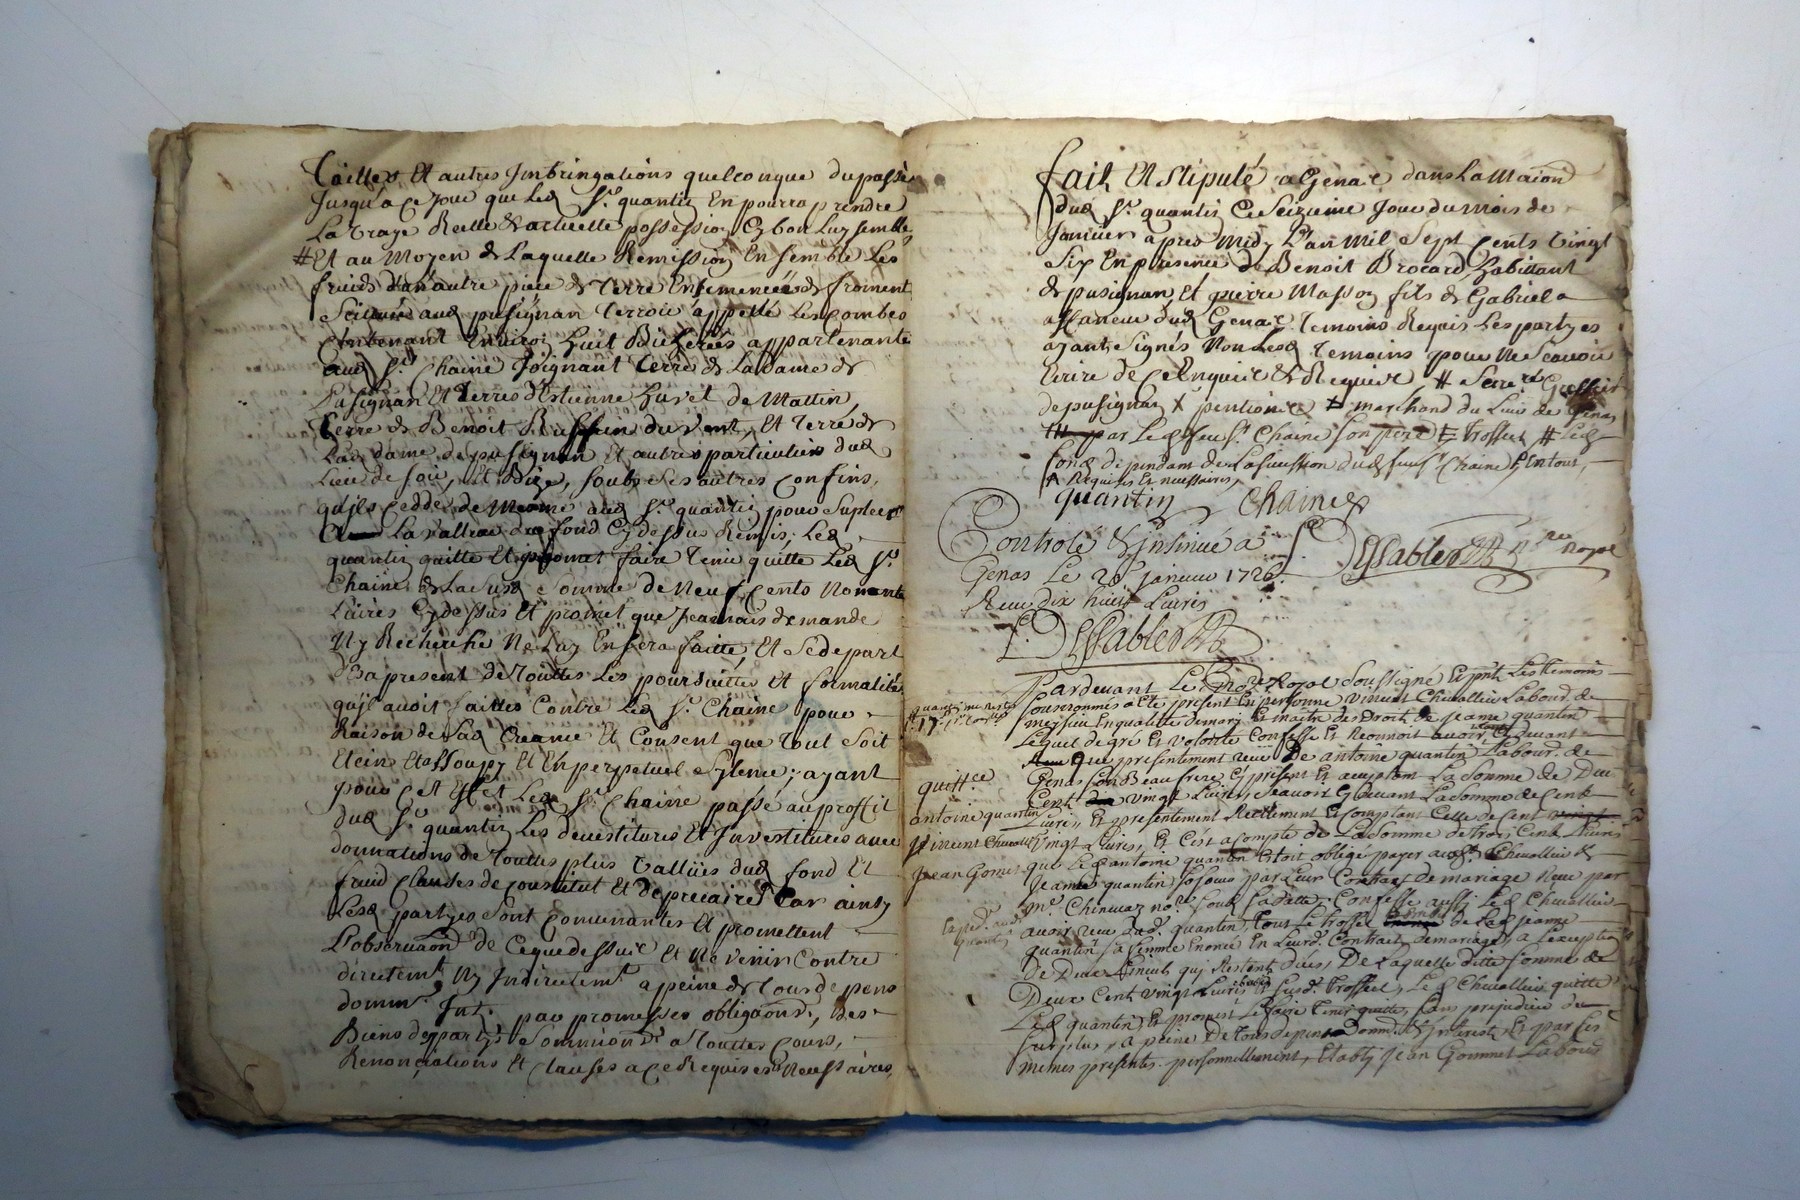 Tailles Et autres Imbringations quelconque du passé
Jusqu'a ce jour que Led. Sr. quantin En pourra prendre
La vraye Reelle & actuelle possession Cy bon Luy semble
# Et au Moyen de Laquelle Remission Ensemble Les
fruids d'un autre piece de Terre Ensemencée de froment
Scittuée aud. pusignan Terroir appellé Les Combes
Contenant Environ huit Bicherées appartenante
aud. Sr. Chaine Joignant Terre de La Dame de
Pusignan Et Terres d'Estienne huvet de Mattin,
Terre de Benoit du vent, Et Terre de
Lad. Dame de pusignan Et autres particuliers dud.
Lieu de soir, Et Bize, soubs ses autres Confins,
qu'ils cedde de mesme aud. Sr. quantin pour Supleer
La valleur du fond Cy dessus Remis; Led.
quantin quitte Et promet faire Tenir quitte Led. Sr.
Chaine de La susd. somme de Neuf Cents Nonante
Livres Cy dessus Et promet que Jeamais demande
Ny Recherche Ne Luy En sera faitte, Et se depart
Des apresent de Touttes Les poursuittes Et formalités
qu'il avoit faittes Contre Led. Sr. Chaine pour
Raison de Lad. Creance Et Consent que Tout soit
Etein Et assoupy Et En perpetuel Sylence; ayant
pour Cet Effet Led. Sr. Chaine passé au proffit
dud. Sr. quantin Les devestitures Et Investitures avec
donnations de Touttes plus vallües dud. fond Et
fruid Clauses de constitut Et de precaire Car ainsy
Lesd. partyes sont Convenantes Et promettent
L'observaon. de Ce que dessus Et Ne venir Contre
directemt. Ny Indirectemt. a peine de tous depens
domm. Int. par promesses obligaons., Des
Biens des partyes soumissions a Touttes Cours,
Renonciations Et Clauses a ce Requises Et Necessaires,
fait Et stipulé a Genas dans La Maison
dud. Sr. quantin Ce Seizieme Jour du Mois de
Janvier apres Midy L'an Mil Sept Cents Vingt
Six En presence de Benoit Brocard habittant
de pusignan, Et pierre Masson fils de Gabriel
affaneur dud. Genas Temoins Requis Les partyes
ayant Signés Non Lesd. Temoins pour Ne Scavoir
Ecrire de Ce Enquis & Requis # Secre.re Greffier
de pusignan X # marchand du Lieu de Genas
par Led. feu Sr. Chaine son pere # Led.
fond dependant de La succession dud. feu Sr. Chaine Et Entout,
X Requises Et necessaires,
quantin Chaine
Controlé & Insinué a
Genas Le 28 Janvier 1726.
Receu dix huit Livres
Royal
Pardevant Le No.re Royal Soussigné Et pnt. Les temoins
sousnommés a Eté present En personne vincent Chevallier Labour. de
meyssieu En qualitté de mary Et maitre des Droits de jeanne quantin
Lequel de gré Et volonté Confesse Et Reconnoit avoir, Cydevant
que presentement receu De antoine quantin Labour. de
Genas son Beau frere Cy present Et acceptant La Somme de Deux
Cent vingt Livres, Scavoir Cy devant La somme de Cent
Livres, Et presentement Reellement Et Comptant Celle de Cent
vingt Livres, Et C'est a compte de La somme de trois Cent Livres
que Led. antoine quantin Estoit obligé payer aud. Chevallier &
jeanne quantin sa soeur par Leur Contract de mariage Receu par
Me. Chinuaz no.re sous sa datte; Confesse aussi Led. Chevallier
avoir receu dud. quantin, tous Le trossel de Lad. jeanne
quantin sa femme Enoncé En Leurd. Contract de mariage, a L'exception
De Deux Linceuls qui Restent Deus, De Laquelle ditte somme de
Deux Cent vingt Livres Et susd. trossel, Led. Chevallier quitte
Led. quantin Et promet Le faire tenir quitte, sans prejudice du
surplus, a peine De tous depens Domm. & Interest, Et par Ces
mêmes presentes personnellement, Etably jean Gommet Labour.
quitt.ce
antoine quantin
Vincent Chevallier
jean Gomet